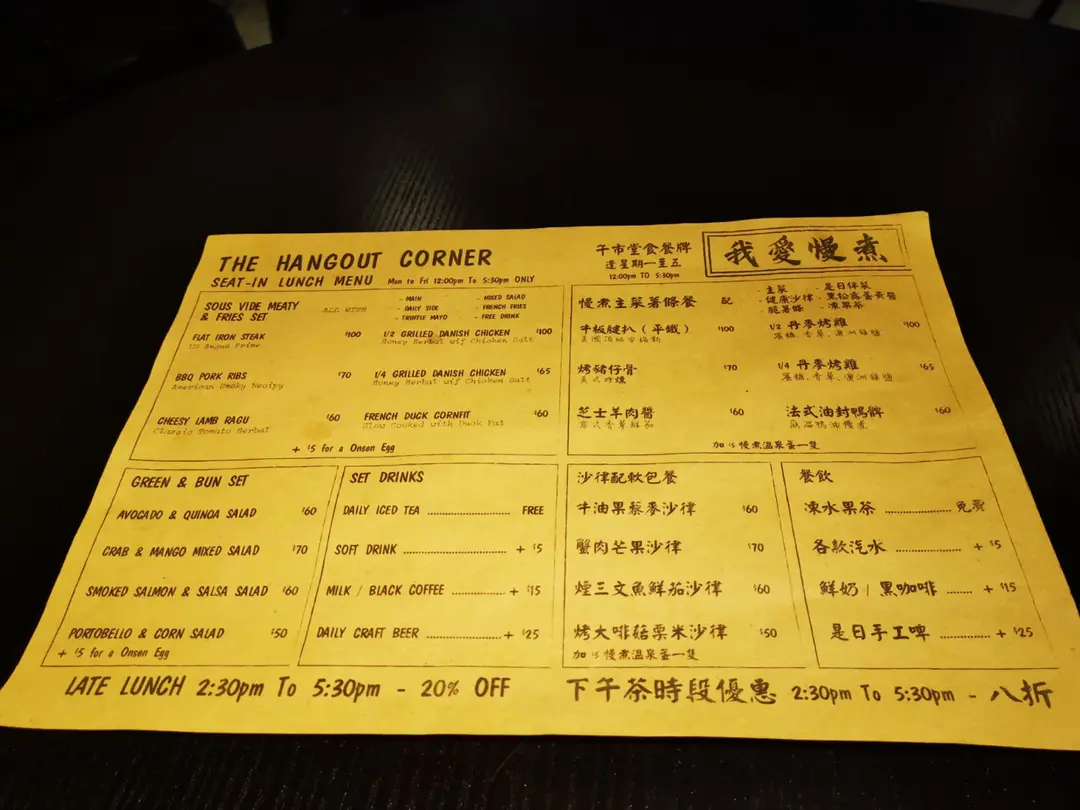 THE HANGOUT CORNER
SEAT-IN LUNCH MENU Mon to Fri 12:00pm To 5:30pm ONLY
SOUS VIDE MEATY & FRIES SET ALL WITH
- MAIN
- DAILY SIDE
- TRUFFLE MAYO
- MIXED SALAD
- FRENCH FRIES
- FREE DRINK
FLAT IRON STEAK $100
US Angus Prime
1/2 GRILLED DANISH CHICKEN $100
Honey Herbal wif Chicken Salt
BBQ PORK RIBS $70
American Smoky Recipy
1/4 GRILLED DANISH CHICKEN $65
Honey Herbal wif Chicken Salt
CHEESY LAMB RAGU $60
Classic Tomato Herbal
FRENCH DUCK CORNFIT $60
Slow Cooked with Duck Fat
+ $5 for a Onsen Egg
GREEN & BUN SET
AVOCADO & QUINOA SALAD $60
CRAB & MANGO MIXED SALAD $70
SMOKED SALMON & SALSA SALAD $60
PORTOBELLO & CORN SALAD $50
+ $5 for a Onsen Egg
SET DRINKS
DAILY ICED TEA FREE
SOFT DRINK + $5
MILK / BLACK COFFEE + $15
DAILY CRAFT BEER + $25
LATE LUNCH 2:30pm To 5:30pm - 20% OFF
午市堂食餐牌
逢星期一至五
12:00pm TO 5:30pm
我愛慢煮
慢煮主菜薯條餐 配
- 主菜
- 健康沙律
- 脆薯條
- 是日伴菜
- 黑松露蛋黃醬
- 凍果茶
牛板腱扒（平鐵） $100
1/2 丹麥烤雞 $100
蜜糖、香草、澳洲雞鹽
烤豬仔骨 $70
美式炸燻
1/4 丹麥烤雞 $65
蜜糖、香草、澳洲雞鹽
芝士羊肉醬 $60
法式油封鴨髀 $60
低溫鴨油慢煮
加 $5 慢煮溫泉蛋一隻
沙律配軟包餐
牛油果藜麥沙律 $60
蟹肉芒果沙律 $70
煙三文魚鮮茄沙律 $60
烤大啡菇粟米沙律 $50
加 $5 慢煮溫泉蛋一隻
餐飲
凍水果茶 免費
各款汽水 + $5
鮮奶 / 黑咖啡 + $15
是日手工啤 + $25
下午茶時段優惠 2:30pm To 5:30pm - 八折